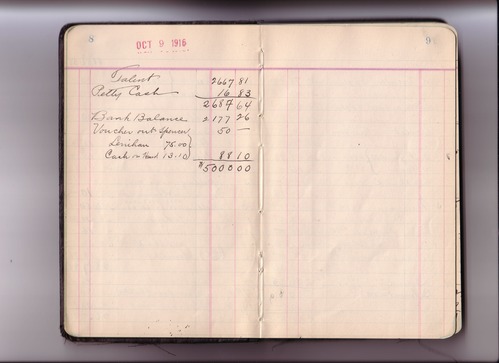 8
OCT 9 1916
9
Talent 2667 81
Petty Cash 16 83
2684 64
Bank Balance 2177 26
Voucher out Spencer 50 —
Lenihan 75.00
Cash in Hand 13.10 88 10
$5000 00